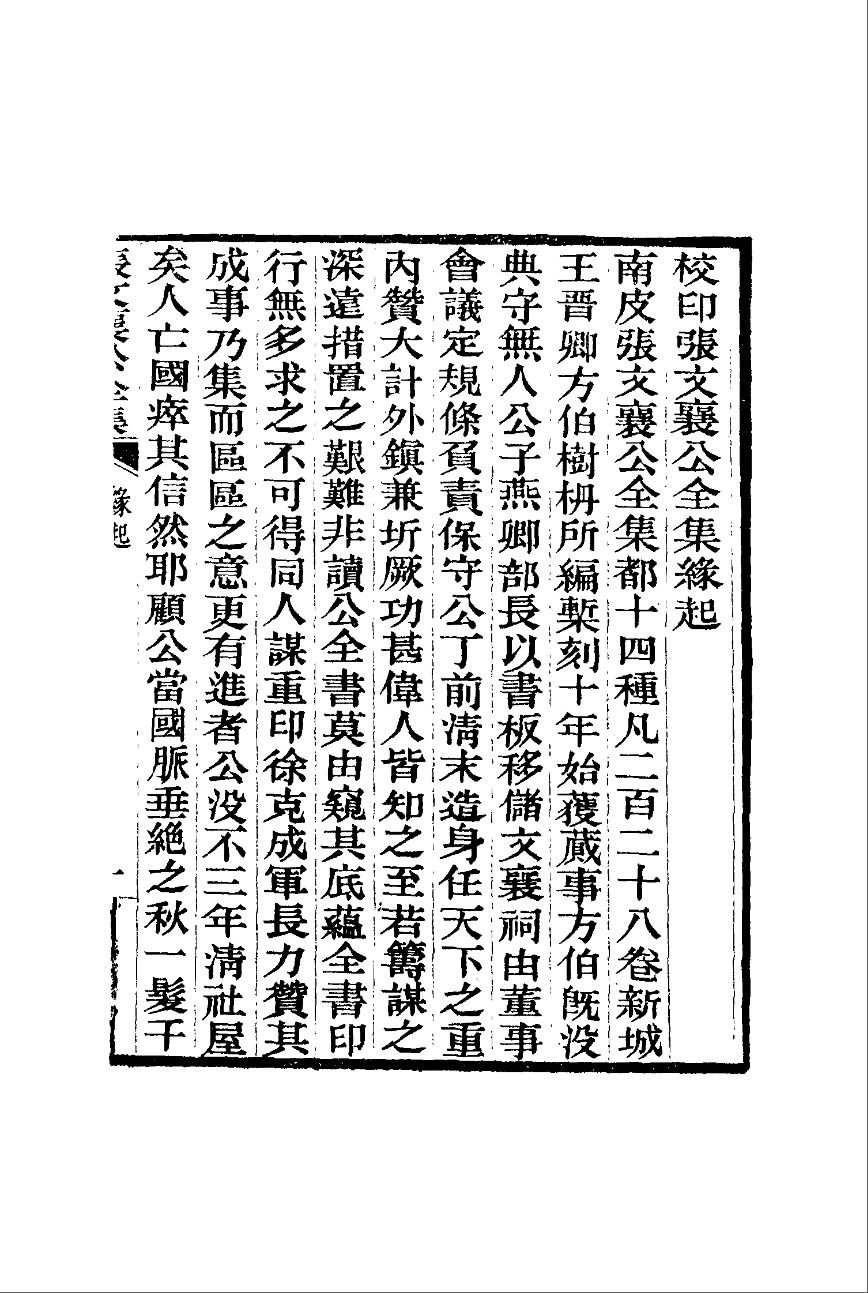 校印張文襄公全集緣起
南皮張文襄公全集都十四種凡二百二十八卷新城
王晋卿方伯樹枏所編槧刻十年始獲蕆事方伯旣没
典守無人公子燕卿部長以書板移儲文襄祠由董事
會議定規條負責保守公丁前淸末造身任天下之重
內贊大計外鎭兼圻厥功甚偉人皆知之至若籌謀之
深遠措置之艱難非讀公全書莫由窺其底蘊全書印
行無多求之不可得同人謀重印徐克成軍長力贊其
成事乃集而區區之意更有進者公没不三年淸社屋
矣人亡國瘁其信然耶顧公當國脈垂絶之秋一髮千
張文襄公全集 緣起 一